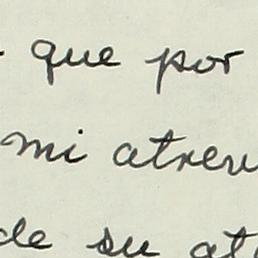 que por
mi atrev
de su at